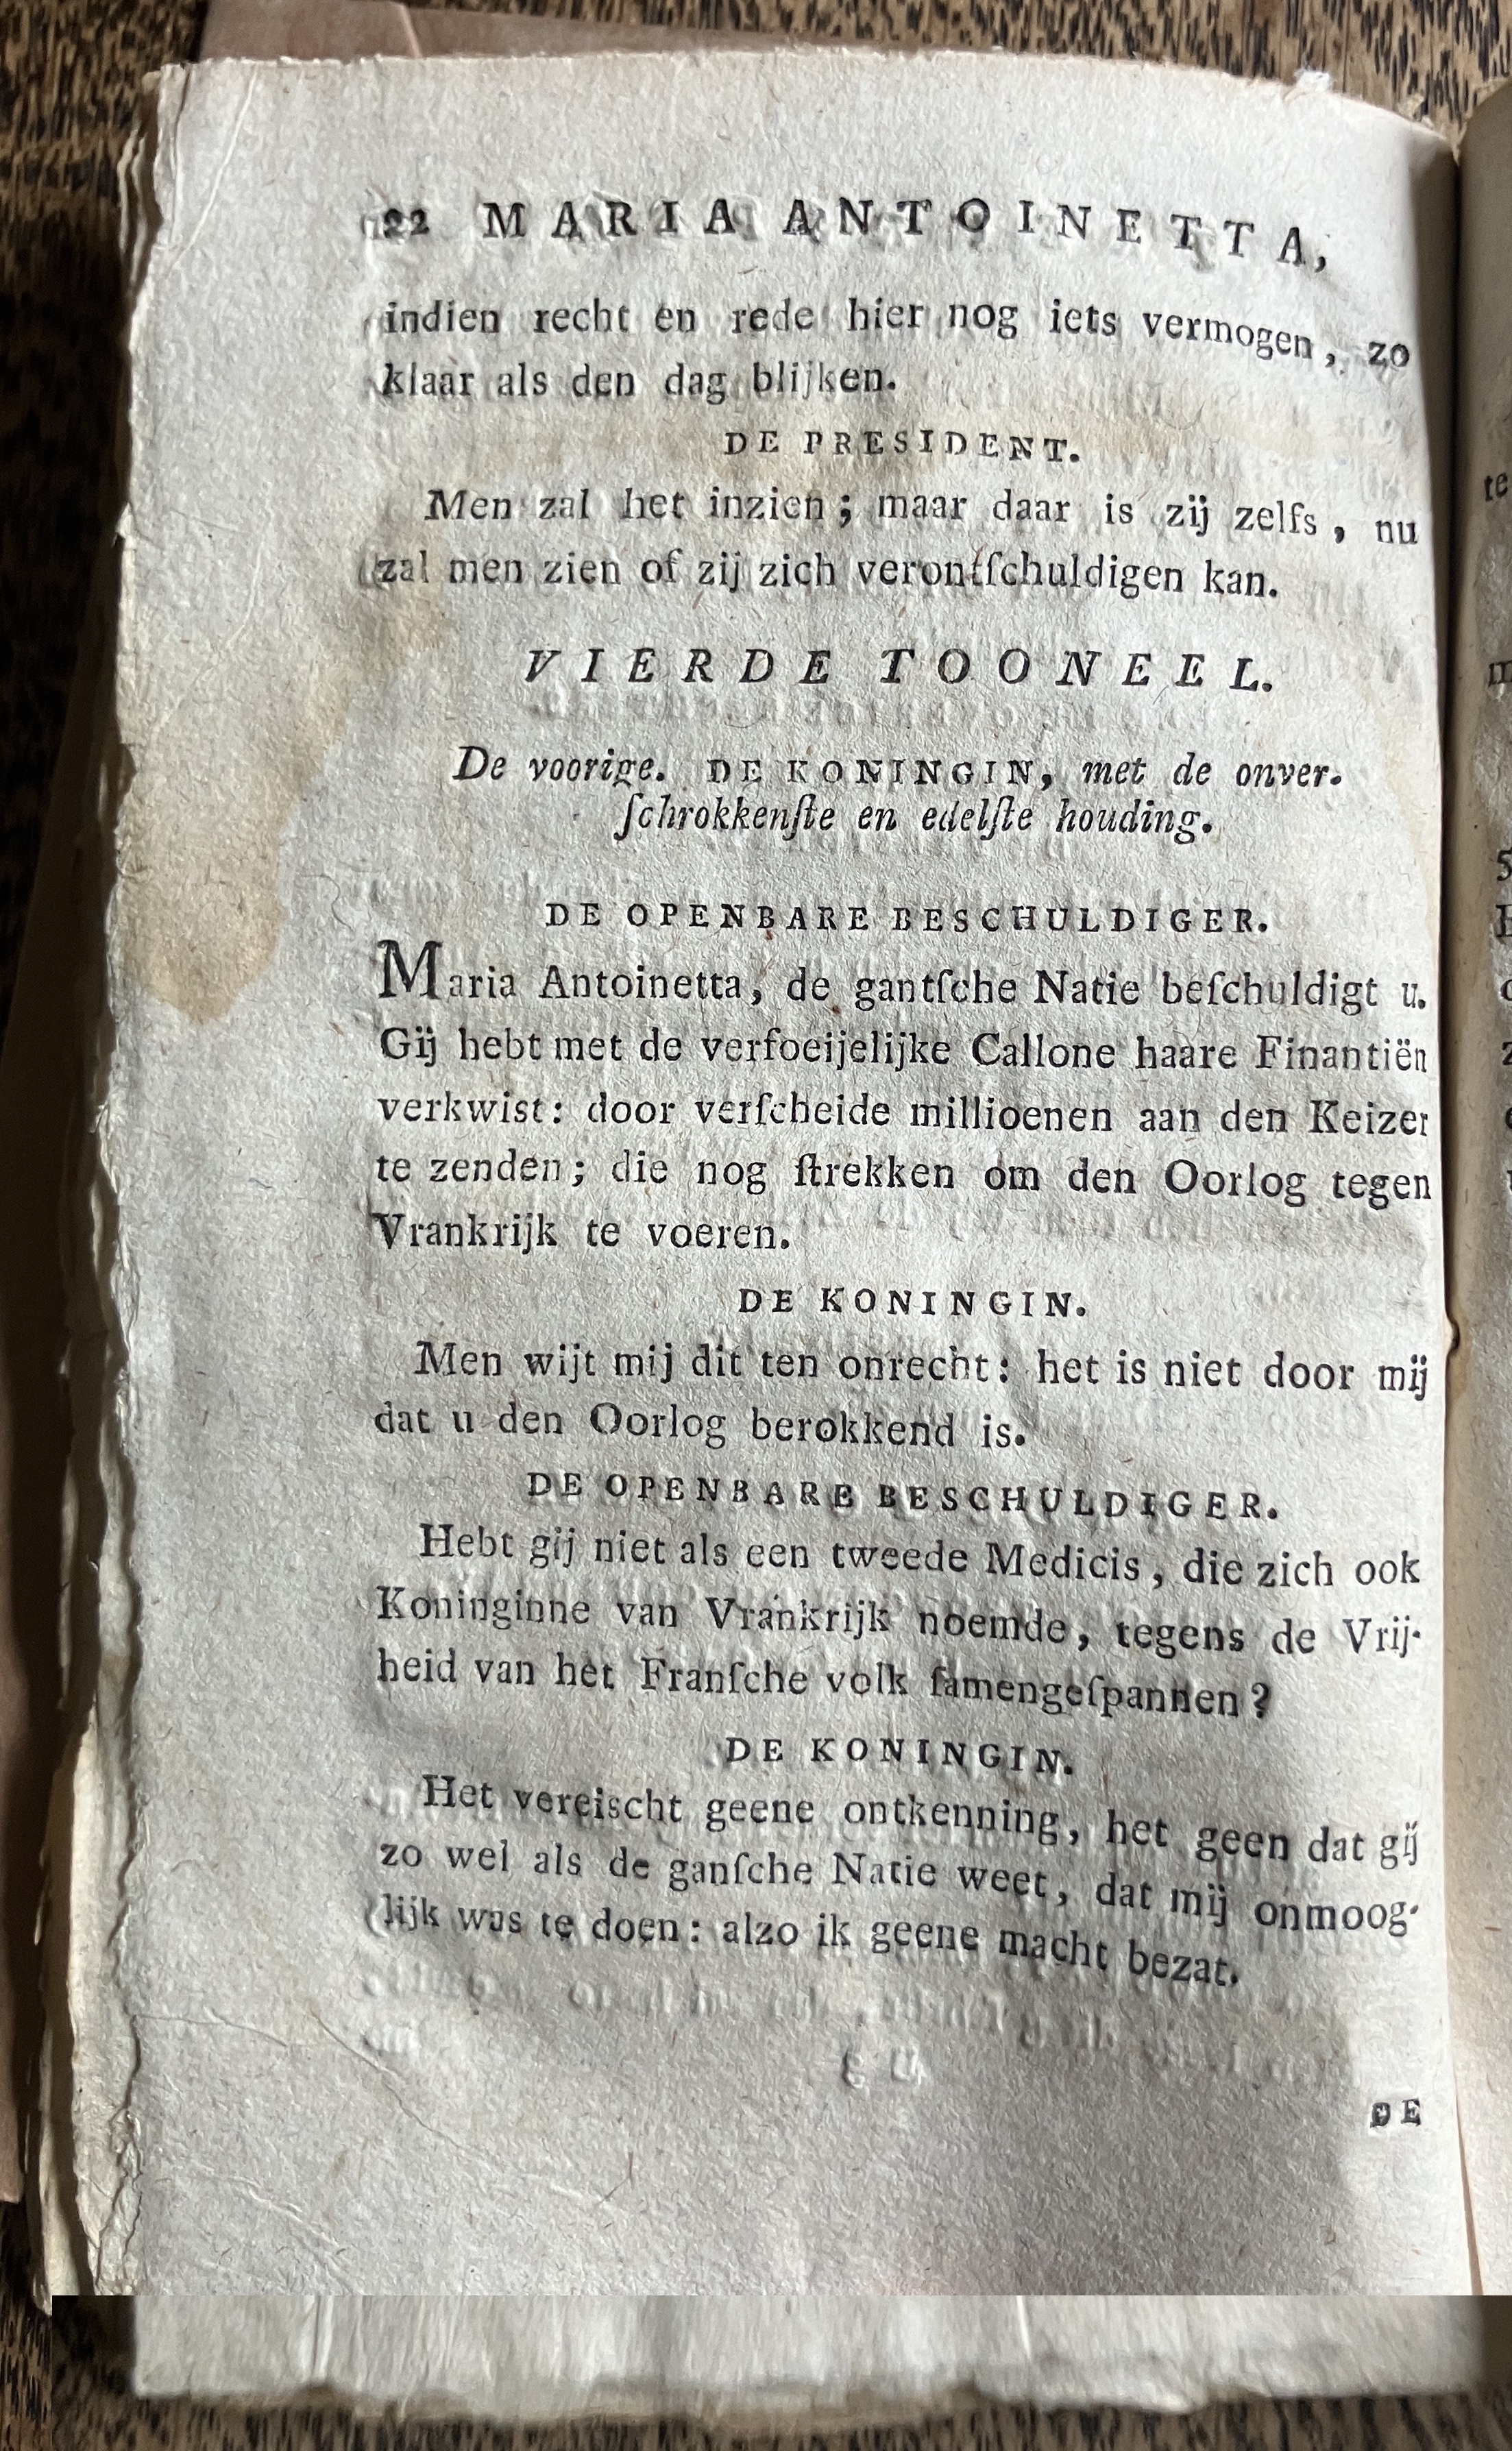 22 MARIA ANTOINETTA,
indien recht en rede hier nog iets vermogen, zo
klaar als den dag blijken.
DE PRESIDENT.
Men zal het inzien; maar daar is zij zelfs, nu
zal men zien of zij zich verontſchuldigen kan.
VIERDE TOONEEL.
De voorige. DE KONINGIN, met de onver-
ſchrokkenſte en edelſte houding.
DE OPENBARE BESCHULDIGER.
Maria Antoinetta, de gantſche Natie beſchuldigt u.
Gij hebt met de verfoeijelijke Callone haare Finantiën
verkwist: door verſcheide millioenen aan den Keizer
te zenden; die nog ſtrekken om den Oorlog tegen
Vrankrijk te voeren.
DE KONINGIN.
Men wijt mij dit ten onrecht: het is niet door mij
dat u den Oorlog berokkend is.
DE OPENBARE BESCHULDIGER.
Hebt gij niet als een tweede Medicis, die zich ook
Koninginne van Vrankrijk noemde, tegens de Vrij-
heid van het Franſche volk ſamengeſpannen?
DE KONINGIN.
Het vereischt geene ontkenning, het geen dat gij
zo wel als de ganſche Natie weet, dat mij onmoog-
lijk was te doen: alzo ik geene macht bezat.
DE